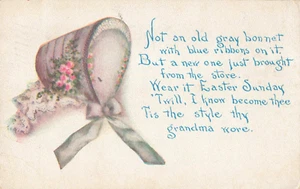 Not an old gray bonnet
with blue ribbons on it,
But a new one just brought
from the store.
Wear it Easter Sunday
'Twill, I know become thee
'Tis the style thy
grandma wore.